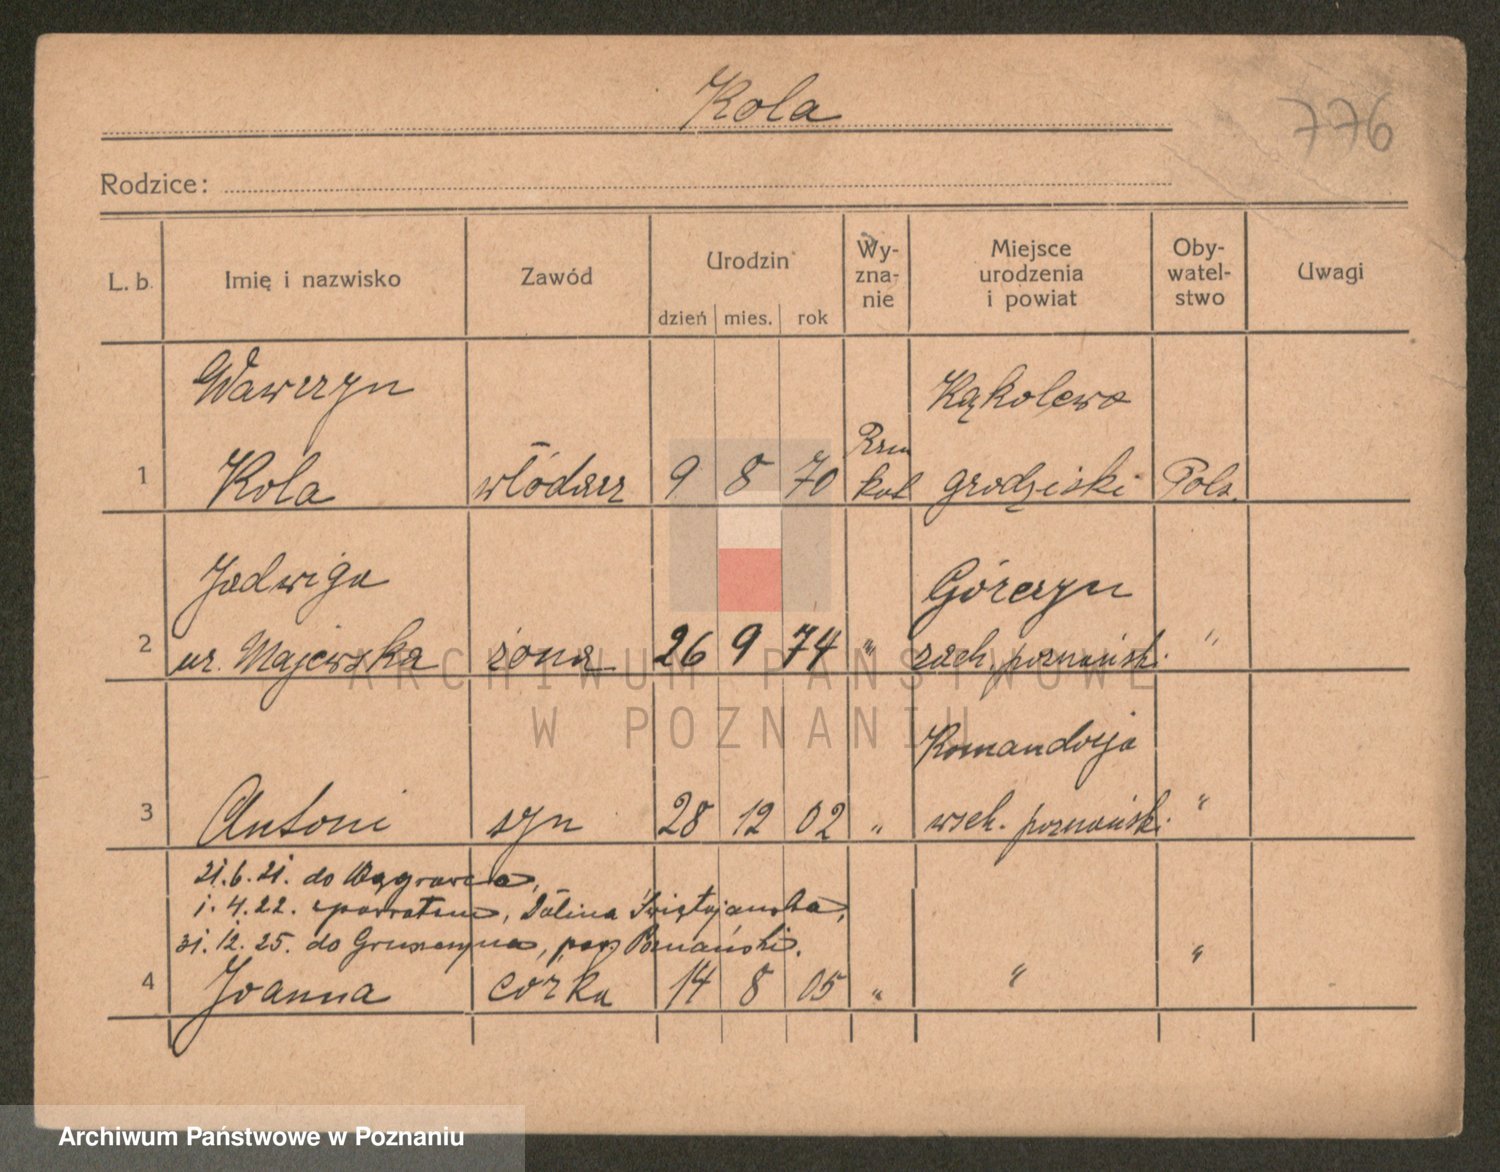 Kola
776
Rodzice:
L. b. Imię i nazwisko Zawód Urodzin Wy- zna- nie Miejsce urodzenia i powiat Oby- watel- stwo Uwagi
dzień mies. rok
Wawrzyn Kąkolewo
1 Kola włódarz 9 8 70 Rzm kat grodziski Pols.
Jadwiga Górczyn
2 ur. Majewska żona 26 9 74 " zach. poznański "
Komandorja
3 Antoni syn 28 12 02 " wsch. poznański "
21.6.21. do Wągrowca,
1.4.22. zpowrotem, Dolina Świętojańska,
31.12.25. do Gruszczyna, pow. Poznański.
4 Joanna córka 14 8 05 " " "
ARCHIWUM PAŃSTWOWE
W POZNANIU
Archiwum Państwowe w Poznaniu